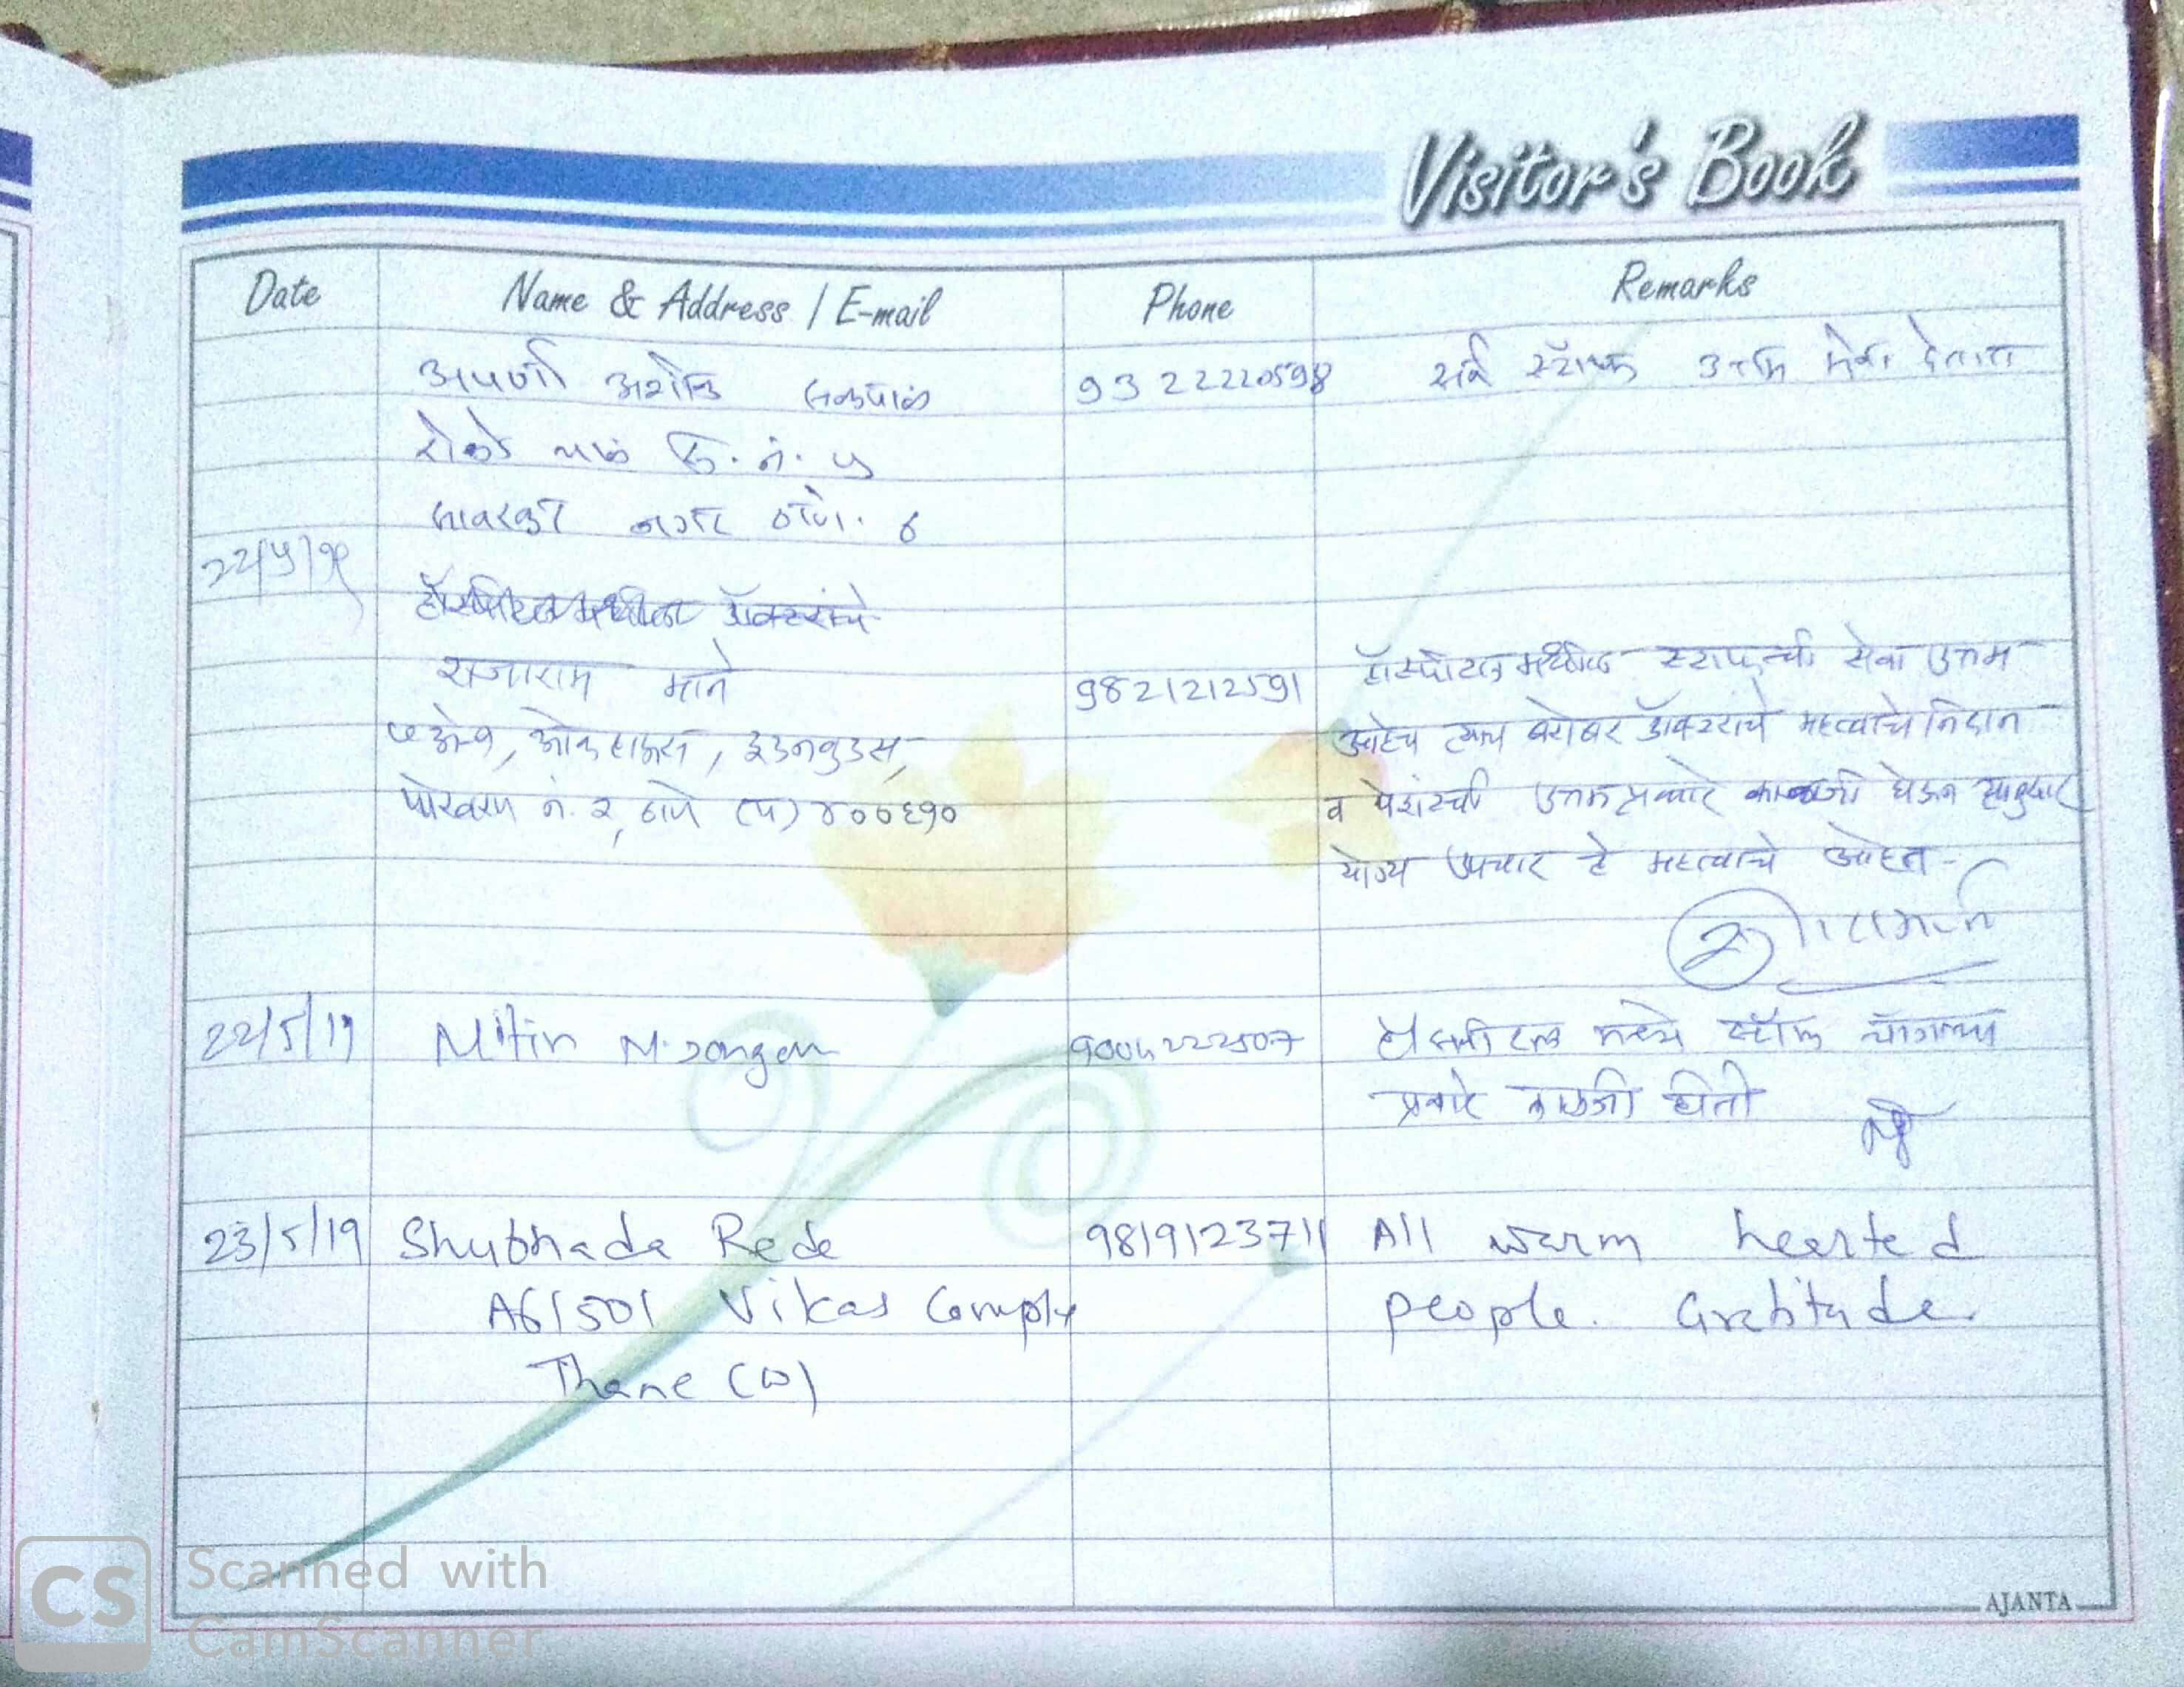 Visitor's Book
Date Name & Address / E-mail Phone Remarks
अपर्णा अशोक सकपाळ 9322220598 सर्व स्टाफ उत्तम सेवा देतात
नगर ठाणे. ६
22/5/19
हॉस्पिटल मधील डॉक्टरांचे
राजाराम माने 9821212591 हॉस्पीटल मधील स्टाफची सेवा उत्तम
ओक हाऊस, इडनवुडस, आहेच त्याच बरोबर डॉक्टरांचे महत्वाचे निदान
पोखरण नं. २, ठाणे (प) ४००६१० व पेशंटची उत्तमप्रकारे काळजी घेऊन त्यानुसार
योग्य उपचार हे महत्वाचे आहेत-
22/5/19 Nitin M. हॉस्पीटल मध्ये स्टाफ चांगल्या
प्रकारे काळजी घेतो
23/5/19 Shubhada Rede 9819123711 All warm hearted
A6/501 Vikas Complx people. Gratitude
Thane (W)
AJANTA
CS Scanned with
CamScanner